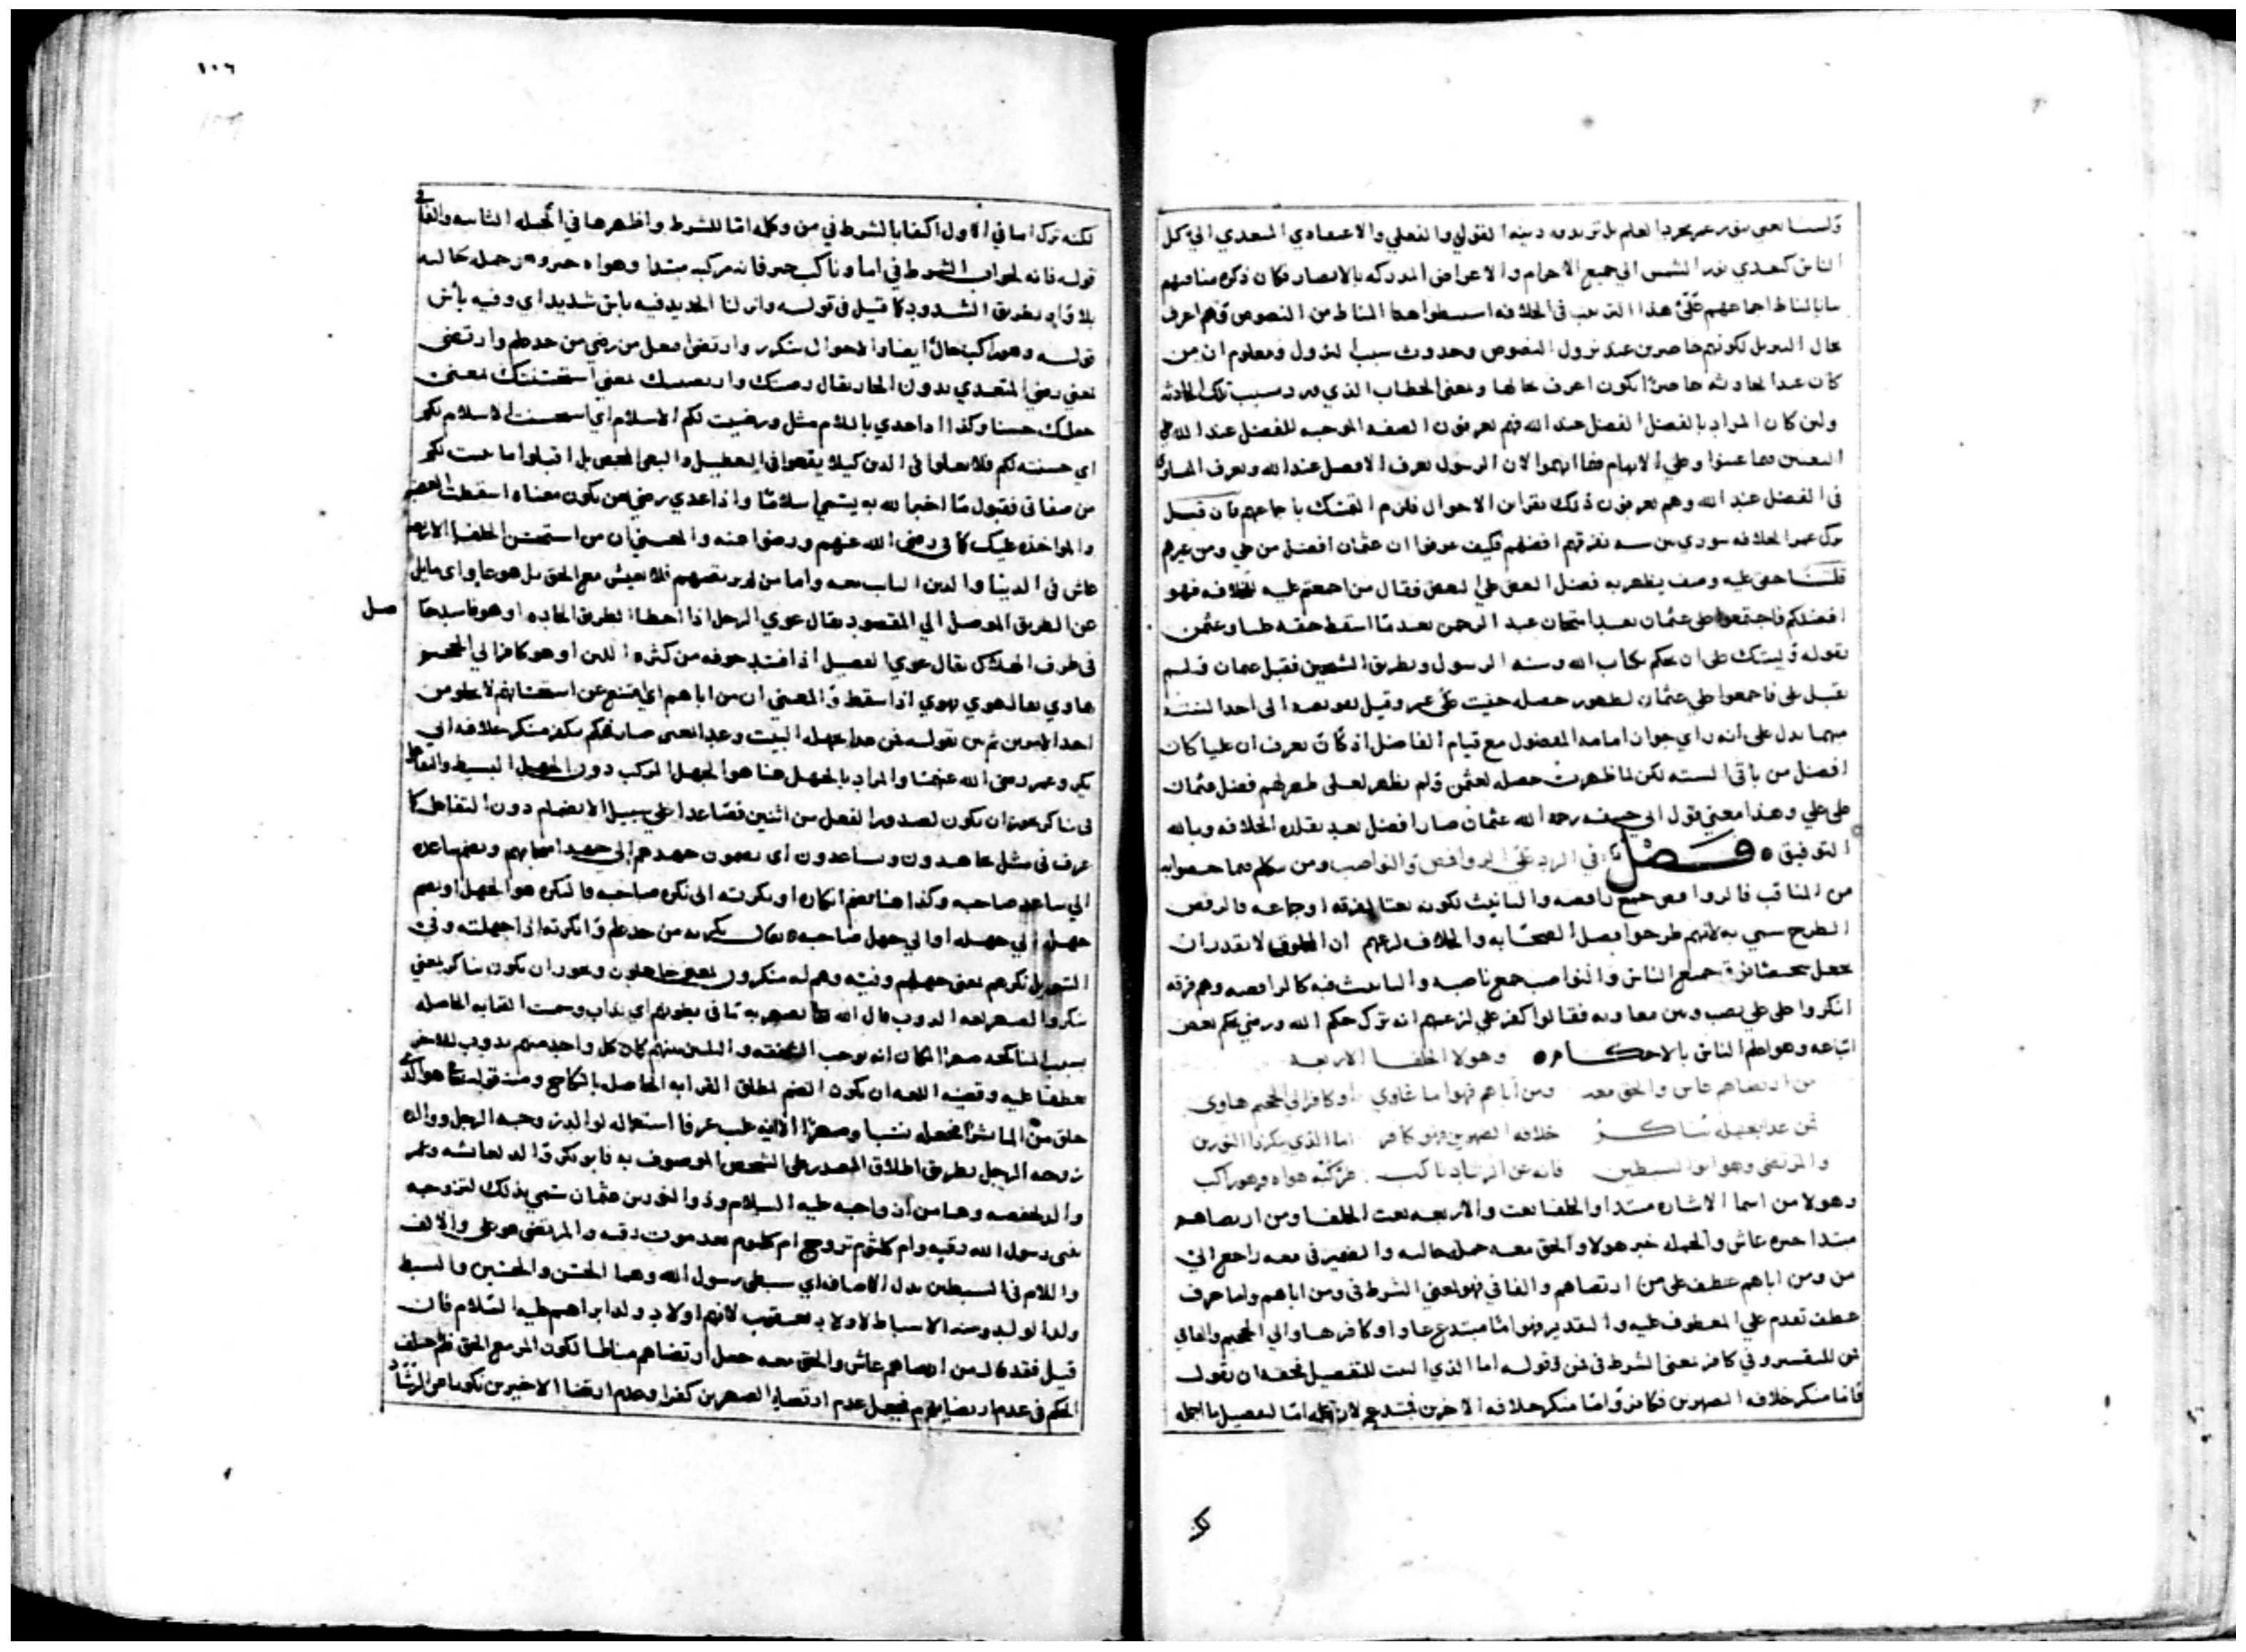 الناس كتعدي نور الشمس الى جميع الاجرام والاعراض المدركه بالابصار فكان ذكر مناقبهم
بيانا لمناط اجماعهم على هذا الترتيب في الخلافه استنبطوا هذا المناط من النصوص وهم اعرف
بحال التنزيل لكونهم حاضرين عند نزول النصوص وحدوث سبب النزول ومعلوم ان من
كان عند الحادثه حاضرا يكون اعرف بحالها وبمعنى الخطاب الذي ورد بسبب تلك الحادثه
ولئن كان المراد بالفضل الفضل عند الله فهم يعرفون الصفه الموجبه للفضل عند الله
في الفضل عند الله وهم يعرفون ذلك بقراين الاحوال فلزم التمسك باجماعهم فان قيل
ترك عمر الخلافه شورى بين سته نفر فكيف عرفوا ان عثمان افضل من علي ومن غيرهم
قلنا خفي عليه وصف يظهر به فضل البعض على البعض فقال من اجمعتم عليه للخلافه فهو
افضلكم فاجتمعوا على عثمان بعد امتحان عبد الرحمن بعد ما اسقط حقه عليا وعثمن
بقوله وليتك على ان تحكم بكتاب الله وسنه الرسول وبطريق الشيخين فقبل عثمان ولم
يقبل علي فاجمعوا على عثمان لظهور خصله خفيت على عمر وقيل تفويضه الى احد السته
مبهما يدل على انه راى جواز امامه المفضول مع قيام الفاضل اذ كان يعرف ان عليا كان
افضل من باقي السته لكن لما ظهرت خصله لعثمن ولم يظهر لعلى ظهر لهم فضل عثمان
على علي وهذا معنى قول ابي حنيفه رحمه الله عثمان صار افضل بعد تقلده الخلافه وبالله
التوفيق ه فصل في الرد على الروافض والنواصب ومن
من المناقب فالروافض جمع رافضه والتانيث لكونه نعتا لفرقه او جماعه والرفض
الطرح سمي به لانهم طرحوا فضل الصحابه والخلاف
جميع الناس والنواصب جمع ناصبه والتانيث فيه كالرافضه وهم فرقه
انكروا على علي نصب وبين معاويه فقالوا كفر علي لزعمهم انه ترك حكم الله ورضي بحكم بعض
اتباعه وهو اعلم الناس بالاحكام ه وهولا الخلفا الاربعه
من ارتضاهم عاش والحق معه ومن اباهم فهو اما غاوي او كافر الى الجحيم هاوي
فمن غدا بجهله يناكر خلافه الصهرين فهو كافر اما الذي ينكر ذا النورين
والمرتضى وهو ابو السبطين فانه عن الرشاد ناكب مركبه هواه وهو راكب
وهولا من اسما الاشاره مبتدا والخلفا نعت والاربعه نعت الخلفا ومن ارتضاهم
مبتدا خبره عاش والجمله خبر هولا والحق معه جمله حاليه والضمير في معه راجع الى
من ومن اباهم عطف على من ارتضاهم والفا في فهو لمعنى الشرط في ومن اباهم واما حرف
عطف تقدم على المعطوف عليه والتقدير فهو اما مبتدع غاو او كافر هاو الى الجحيم والفا في
فمن للتفسير وفي كافر لمعنى الشرط في فمن وقوله اما الذي البيت للتفصيل فحقه ان يقول
فاما منكر خلافه الصهرين فكافر واما منكر خلافه الاخرين فمبتدع
١٠٦
لكنه ترك اما في الاول اكتفا بالشرط في من وكلمه اما للشرط واظهرها في الجمله الثانيه والفا في
قوله فانه لجواب الشرط في اما وناكب خبر فانه مركبه مبتدا وهواه خبره وهي جمله حاليه
بلا واو بطريق الشذوذ كما قيل في قوله وانزلنا الحديد فيه باس شديد اي وفيه باس
قوله وهو راكب حال ايضا والاحوال تتكرر وارتضى افتعل من رضي من حد علم وارتضى
بمعنى رضي المتعدي بدون الجار يقال رضيتك وارتضيتك بمعنى استحسنتك بمعنى
جعلتك حسنا وكذا اذا عدي باللام مثل ورضيت لكم الاسلام اي استحسنت الاسلام لكم
اي حسنته لكم فلا تغلوا في الدين كيلا يقعوا في التعطيل والنفي المحض بل اقبلوا ما بينت لكم
من صفاتي فقبول ما اخبر الله به يسمى اسلاما واذا عدي رضي بعن يكون معناه اسقطت
والمواخذه عليك كما في رضي الله عنهم ورضوا عنه والمعنى ان من استحسن الخلفا الاربعه
عاش في الدنيا والدين الثابت معه واما من لم يرتضهم فلا يعيش مع الحق بل هو غاو اي مايل
عن الطريق الموصل الى المقصود يقال غوي الرجل اذا اخطا الطريق الجاده او هو فاسد
في طرف الهلاك يقال غوي الفصيل اذا فسد جوفه من كثره اللبن او هو كافر الى الجحيم
هاوي يقال هوي يهوي اذا سقط والمعنى ان من اباهم اي امتنع عن استحسانهم لا يخلو من
احد الامرين ثم بين بقوله فمن غدا بجهله البيت وغدا بمعنى صار يحكم بكفر منكر خلافه ابي
بكر وعمر رضى الله عنهما والمراد بالجهل هنا هو الجهل المركب دون الجهل البسيط والتفاعل
في يناكر يجوز ان يكون لصدور الفعل من اثنين فصاعدا على سبيل الانضمام دون التقابل كما
عرف في مثل يجاهدون ويساعدون اي يضمون جهدهم الى جهد اصحابهم ويضم ساعده
الى ساعد صاحبه وكذا هنا يضم انكاره او نكرته الى نكره صاحبه والنكره هو الجهل او يضم
جهله الى جهله او الى جهل صاحبه يقال نكرته من حد علم وانكرته اي جهلته وفي
التنزيل نكرهم بمعنى جهلهم وفيه وهم له منكرون بمعنى جاهلون ويجوز ان يكون يناكر بمعنى
ينكر والصهر لغه الذوب قال الله تعالى يصهر به ما في بطونهم اي يذاب وسميت القرابه الحاصله
بسبب المناكحه صهرا لمكان انه يوجب الشفقه واللين بينهم كان كل واحد منهم يذوب للاخر
عطفا عليه وقضيه اللغه ان يكون اسم لمطلق القرابه الحاصل بالنكاح ومنه قوله تعالى هو الذي
خلق من الماء بشرا فجعله نسبا وصهرا الا انه غلب عرفا استعماله لوالد زوجه الرجل ووالده
زوجه الرجل بطريق اطلاق المصدر على الشخص الموصوف به فابو بكر والد لعائشه وعمر
والد لحفصه وهما من ازواجه عليه السلام وذو النورين عثمان سمي بذلك لتزوجه
بنتي رسول الله رقيه وام كلثوم تزوج ام كلثوم بعد موت رقيه والمرتضى هو على والالف
واللام في السبطين بدل الاضافه اي سبطي رسول الله وهما الحسن والحسين والسبط
ولد الولد ومنه الاسباط لاولاد يعقوب لانهم اولاد ولد ابراهيم عليه السلام فان
قيل فقد قال من ارتضاهم عاش والحق معه جعل ارتضاهم مناطا لكون المر مع الحق فلم خالف
الحكم في عدم ارتضايهم فجعل عدم ارتضا الصهرين كفرا وعدم ارتضا الاخيرين نكوبا عن الرشاد